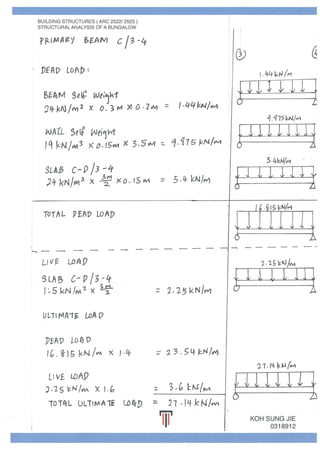 BUILDING STRUCTURES ( ARC 2522/ 2523 )
STRUCTURAL ANALYSIS OF A BUNGALOW
PRIMARY BEAM C/3-4
3 4
DEAD LOAD:
1.44 kN/m
BEAM Self Weight
24 kN/m³ x 0.3m x 0.2m = 1.44 kN/m
9.975 kN/m
WALL Self Weight
19 kN/m³ x 0.15m x 3.5m = 9.975 kN/m
5.4 kN/m
SLAB C-D/3-4
24 kN/m³ x 3m/2 x 0.15m = 5.4 kN/m
16.815 kN/m
TOTAL DEAD LOAD
LIVE LOAD
2.25 kN/m
SLAB C-D/3-4
1.5 kN/m² x 3m/2 = 2.25 kN/m
ULTIMATE LOAD
DEAD LOAD
16.815 kN/m x 1.4 = 23.54 kN/m
27.14 kN/m
LIVE LOAD
2.25 kN/m x 1.6 = 3.6 kN/m
TOTAL ULTIMATE LOAD = 27.14 kN/m
KOH SUNG JIE
0318912